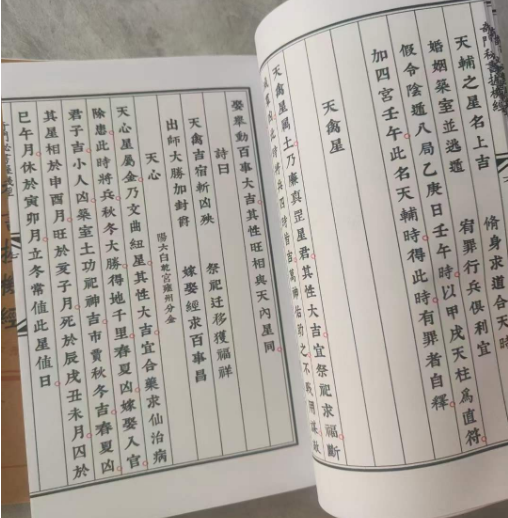 天輔之星名上吉　脩身求道合天時
婚姻築室並遇遷　宥罪行兵俱利宜
假令陰遁八局乙庚日壬午時以甲戌天柱為直符
加四宮壬午此名天輔時得此時有罪者自釋
天禽星
天禽星屬土乃廉真罡星君其性大吉宜祭祀求福斷
娶舉動百事大吉其性旺相與天內星同
詩曰
天禽吉宿新凶殃　祭祀迁移獲福祥
出師大勝加封爵　嫁娶經求百事昌
天心　陽六白乾宮雍州分金
天心星屬金乃文曲紐星其性大吉宜合藥求仙治病
除患此時將兵秋冬大勝得地千里春夏凶嫁娶入官
君子吉小人凶築室土功祀神吉市賣秋冬吉春夏凶
其星相於申酉月旺於亥子月死於辰戌丑未月囚於
巳午月休於寅卯月立冬常值此星值日